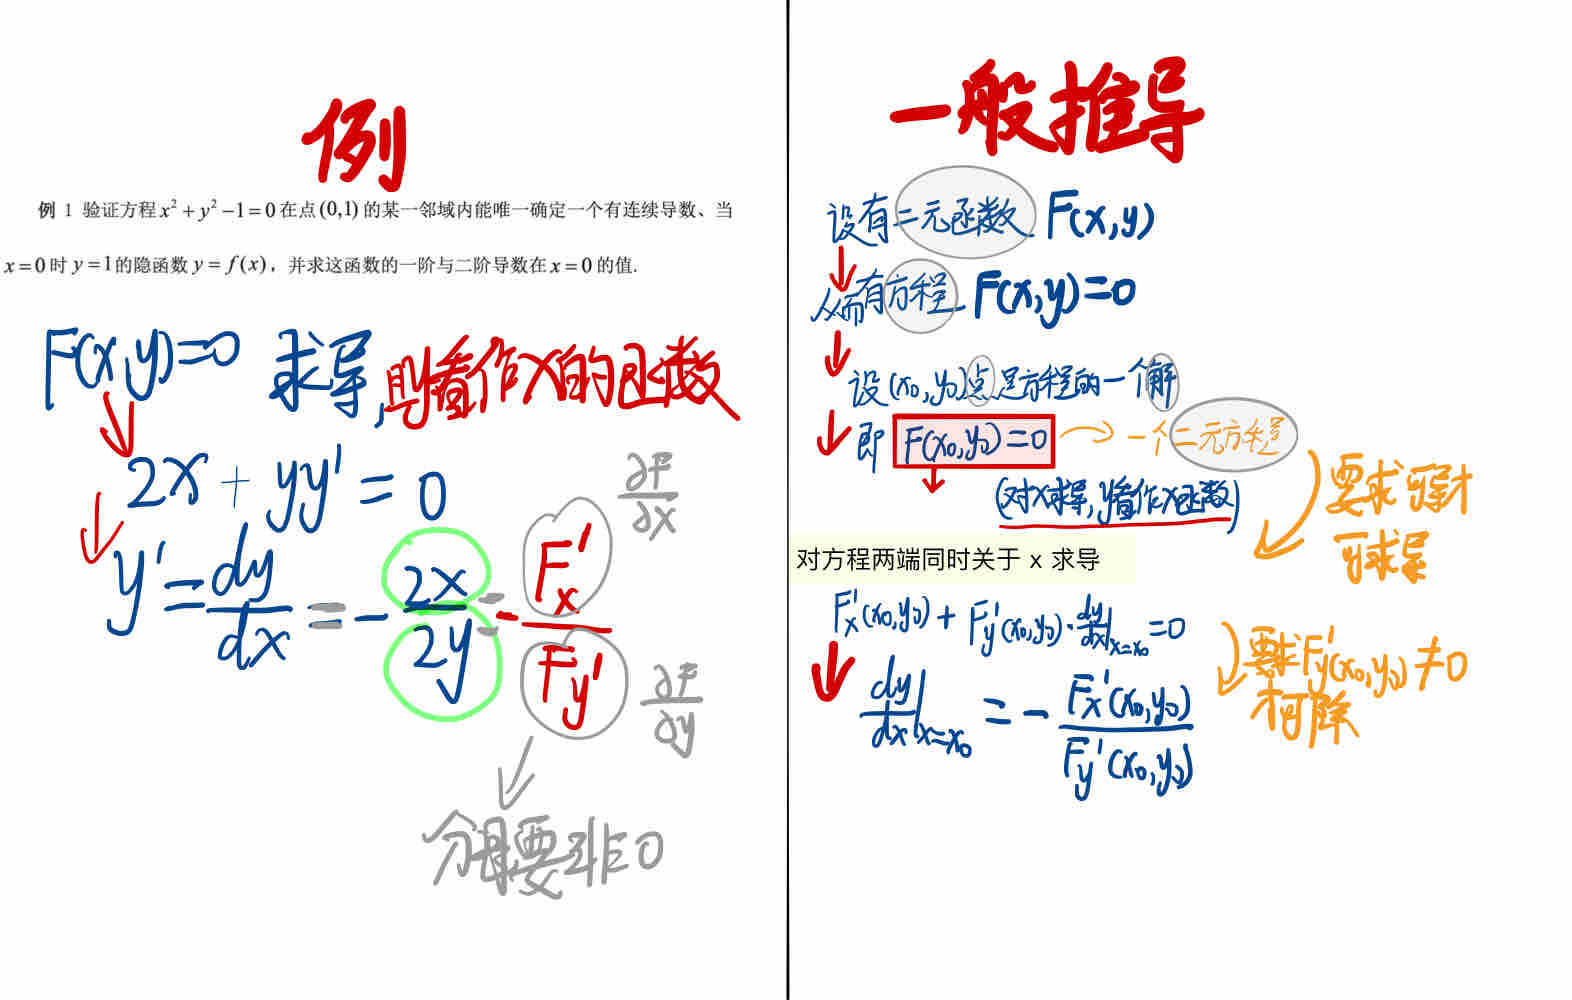 例
例 1 验证方程 x² + y² − 1 = 0 在点 (0,1) 的某一邻域内能唯一确定一个有连续导数、当
x = 0 时 y = 1 的隐函数 y = f(x)，并求这函数的一阶与二阶导数在 x = 0 的值.
F(x,y)=0 求导, 则y看作x的函数
2x + yy' = 0
∂F/∂x
y' = dy/dx = - 2x/2y = - F'x/Fy'
∂F/∂y
分母要非0
一般推导
设有二元函数 F(x,y)
从而有方程 F(x,y)=0
设(x₀,y₀)点是方程的一个解
即 F(x₀,y₀)=0 → 一个二元方程
(对x求导,y看作x函数)
要求可导才
可求导
对方程两端同时关于 x 求导
F'x(x₀,y₀) + F'y(x₀,y₀)·dy/dx|x=x₀ = 0
要求F'y(x₀,y₀)≠0
才可除
dy/dx|x=x₀ = - Fx'(x₀,y₀)/Fy'(x₀,y₀)